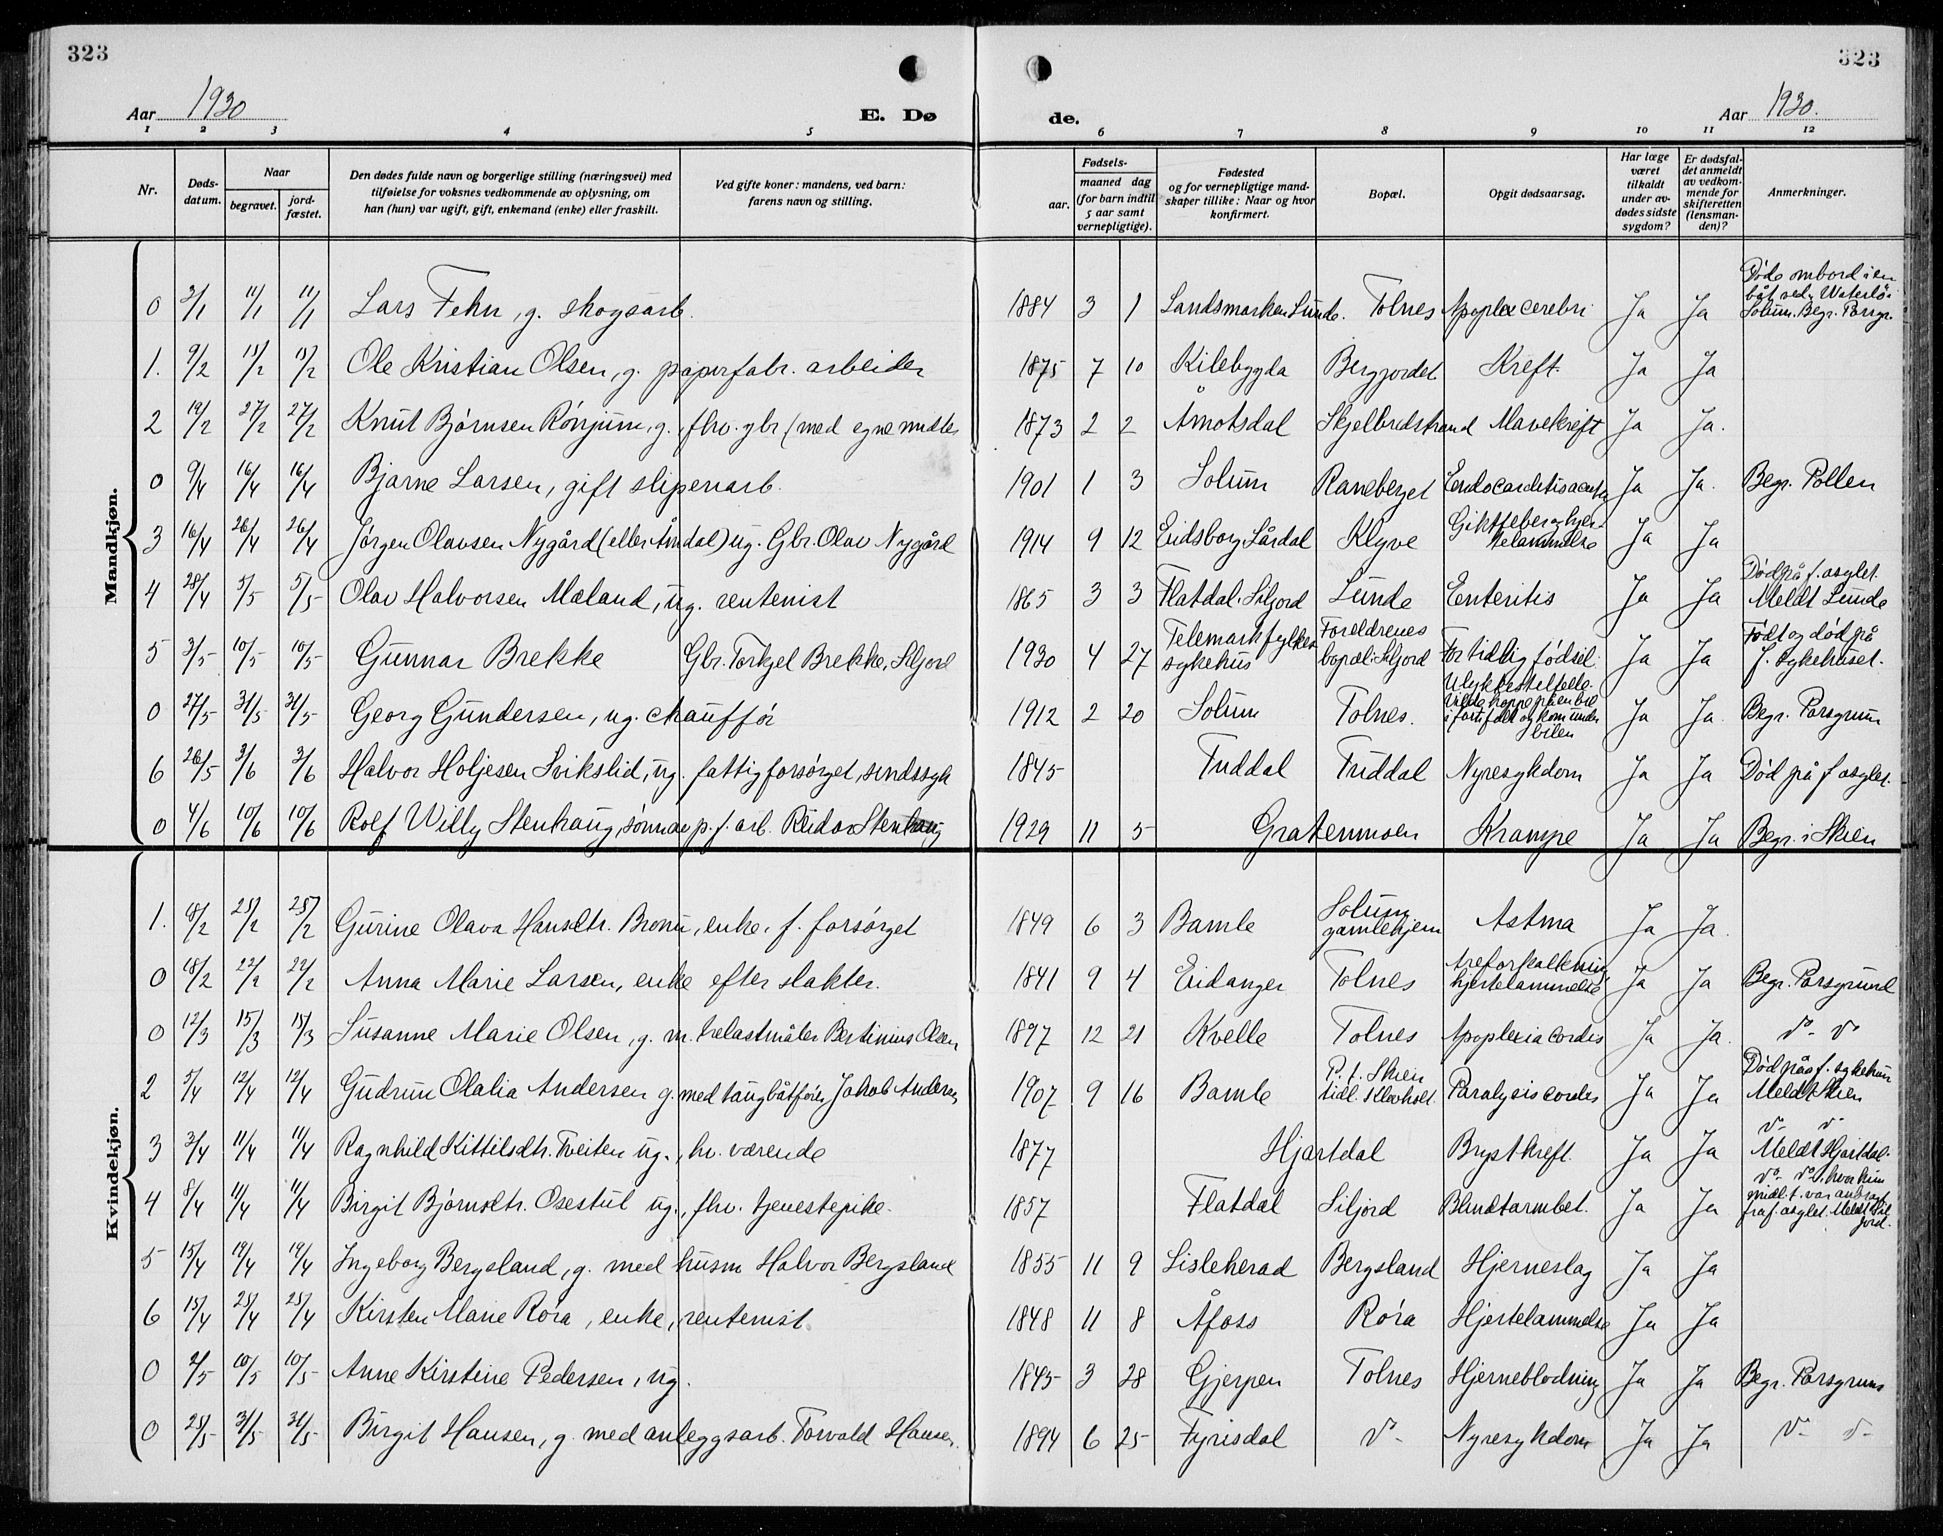 323
323
Aar 1930
E. Dø
de.
Aar 1930.
1 2 3 4 5 6 7 8 9 10 11 12
Nr.
Døds-
datum.
Naar
begravet.
jord-
fæstet.
Den dødes fulde navn og borgerlige stilling (næringsvei) med
tilføielse for voksnes vedkommende av oplysning, om
han (hun) var ugift, gift, enkemand (enke) eller fraskilt.
Ved gifte koner: mandens, ved barn:
farens navn og stilling.
Fødsels-
aar.
maaned dag
(for barn indtil
5 aar samt
vernepligtige).
Fødested
og for vernepligtige mand-
skaper tillike: Naar og hvor
konfirmert.
Bopæl.
Opgit dødsaarsag.
Har læge
været
tilkaldt
under av-
dødes sidste
sygdom?
Er dødsfal-
det anmeldt
av vedkom-
mende for
skifteretten
(lensman-
den)?
Anmerkninger.
Mandkjøn.
0 2/1 11/1 11/1 Lars Fehn, g. skogsarb. 1884 3 1 Landsmarken Lunde. Tolnes Apoplex cerebri Ja Ja Døde ombord i en
båt ved Waterlö i
Solum. Begr. Porsgr.
1. 9/2 15/2 15/2 Ole Kristian Olsen, g. papirfabr. arbeider 1875 7 10 Kilebygda Bergjordet Kreft. Ja Ja
2 19/2 27/2 27/2 Knut Bjørnsen Rønjum, g. fhv. gbr (med egne midler 1873 2 2 Åmotsdal Skjelbredstrand Mavekreft Ja Ja.
0 9/4 16/4 16/4 Bjarne Larsen, gift sliperiarb. 1901 1 3 Solum Raneberget Endocarditis acuta Ja Ja. Begr. Pollen
3 16/4 26/4 26/4 Jørgen Olavsen Nygård (eller Åmdal) ug. Gbr. Olav Nygård 1914 9 12 Eidsborg Lårdal Klyve Giktfeber og hjer-
telammelse Ja Ja
4 28/4 5/5 5/5 Olav Halvorsen Mæland, ug. rentenist 1865 3 3 Flatdal. Siljord Lunde Enteritis Ja Ja Død på f. asylet.
Meldt Lunde
5 3/5 10/5 10/5 Gunnar Brekke Gbr. Torkjel Brekke, Siljord 1930 4 27 Telemark fylkes
sykehus Foreldrenes
bopæl: Siljord For tidlig fødsel Ja Ja Født og død på
f. sykehuset.
0 27/5 31/5 31/5 Georg Gundersen, ug. chauffør 1912 2 20 Solum Tolnes. Ulykkestilfelle.
Vilde hoppe på en bil
i fart falt og kom under
bilen Ja Ja Begr. Porsgrunn
6 26/5 3/6 3/6 Halvor Holjesen Svikslid, ug. fattigforsørget, sindssyk 1845 Tuddal Tuddal Nyresykdom Ja Ja Død på f asylet.
0 4/6 10/6 10/6 Rolf Willy Stenhaug, sønn av p. f. arb. Reidar Stenhaug 1929 11 5 Gratenmoen Krampe Ja Ja Begr. i Skien
Kvindekjøn.
1. 18/2 25/2 25/2 Gurine Olava Hansdtr. Bronn, enke. f. forsørget 1849 6 3 Bamle Solum
gamlehjem Astma Ja Ja.
0 18/2 22/2 22/2 Anna Marie Larsen, enke efter slakter. 1841 9 4 Eidanger Tolnes Åreforkalkning
hjertelammelse Ja Ja Begr. Porsgrund
0 12/3 15/3 15/3 Susanne Marie Olsen, g. m. trelastmåler Bertinius Olsen 1897 12 21 Kvelle Tolnes Apoplexia cordis Ja Ja. do - do
2 5/4 12/4 12/4 Gudrun Olalia Andersen g. med taugbåtfører Jakob Andersen 1907 9 16 Bamle P. t. Skien
tidl. Paralysis cordis Ja Ja Død på f. sykehus
Meldt Skien
3 3/4 11/4 11/4 Ragnhild Kittilsdtr. Tveiten ug., hv. værende 1877 Hjartdal Brystkreft. Ja Ja do - do
Meldt Hjartdal.
4 8/4 11/4 11/4 Birgit Bjørnsdtr. Osestul ug., fhv. tjenestepike. 1857 Flatdal Siljord Blindtarmbet. Ja Ja do - do, hvor hun
midl. t. var anbragt
fra f. asylet. Meldt Sil-
jord.
5 15/4 19/4 19/4 Ingeborg Bergsland, g. med husm Halvor Bergsland 1855 11 9 Lisleherad Bergsland Hjerneslag Ja Ja
6 15/4 25/4 25/4 Kirsten Marie Rora, enke, rentenist. 1848 11 8 Åfoss Rora Hjertelammelse Ja Ja
0 2/5 10/5 10/5 Anne Kirstine Pedersen, ug. 1845 3 28 Gjerpen Tolnes Hjerneblødning Ja Ja Begr. Porsgrunn
0 25/5 31/5 31/5 Birgit Hansen, g. med anleggsarb. Torvald Hansen. 1894 6 25 Fyrisdal do - Nyresykdom Ja Ja do - do -